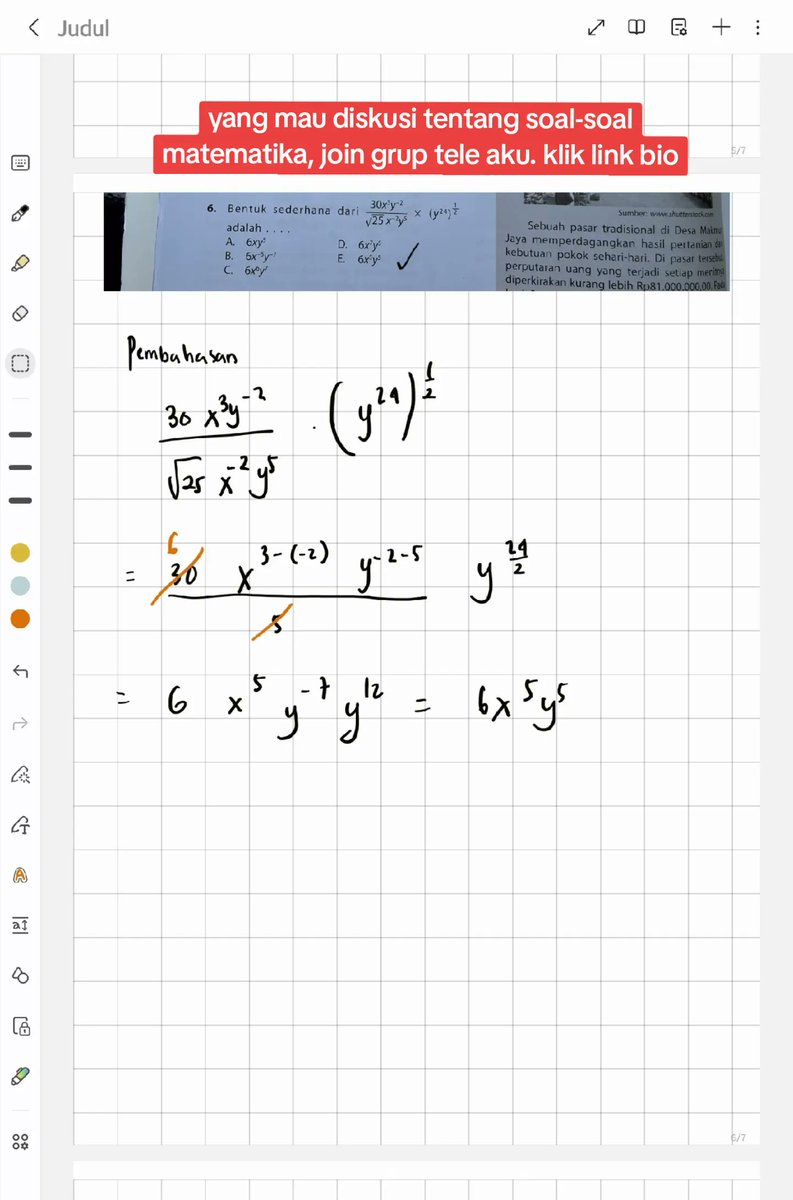 Judul
yang mau diskusi tentang soal-soal
matematika, join grup tele aku. klik link bio
5/7
6. Bentuk sederhana dari 30x³y⁻² / √25 x⁻²y⁵ × (y²⁴)^½
adalah . . . .
A. 6xy²
D.
B. 6x⁻⁵y⁻⁷
E. 6x⁵y⁵
C.
Sumber: www.shutterstock.com
Sebuah pasar tradisional di Desa
Jaya memperdagangkan hasil pertanian dan
kebutuan pokok sehari-hari. Di pasar tersebut
perputaran uang yang terjadi setiap
diperkirakan kurang lebih Rp81.000.000,00.
Pembahasan
30 x³y⁻² / √25 x⁻² y⁵ . (y²⁴)^½
= 6 30 x^3-(-2) y^-2-5 / 5 y^24/2
= 6 x⁵ y⁻⁷ y¹² = 6x⁵y⁵
6/7